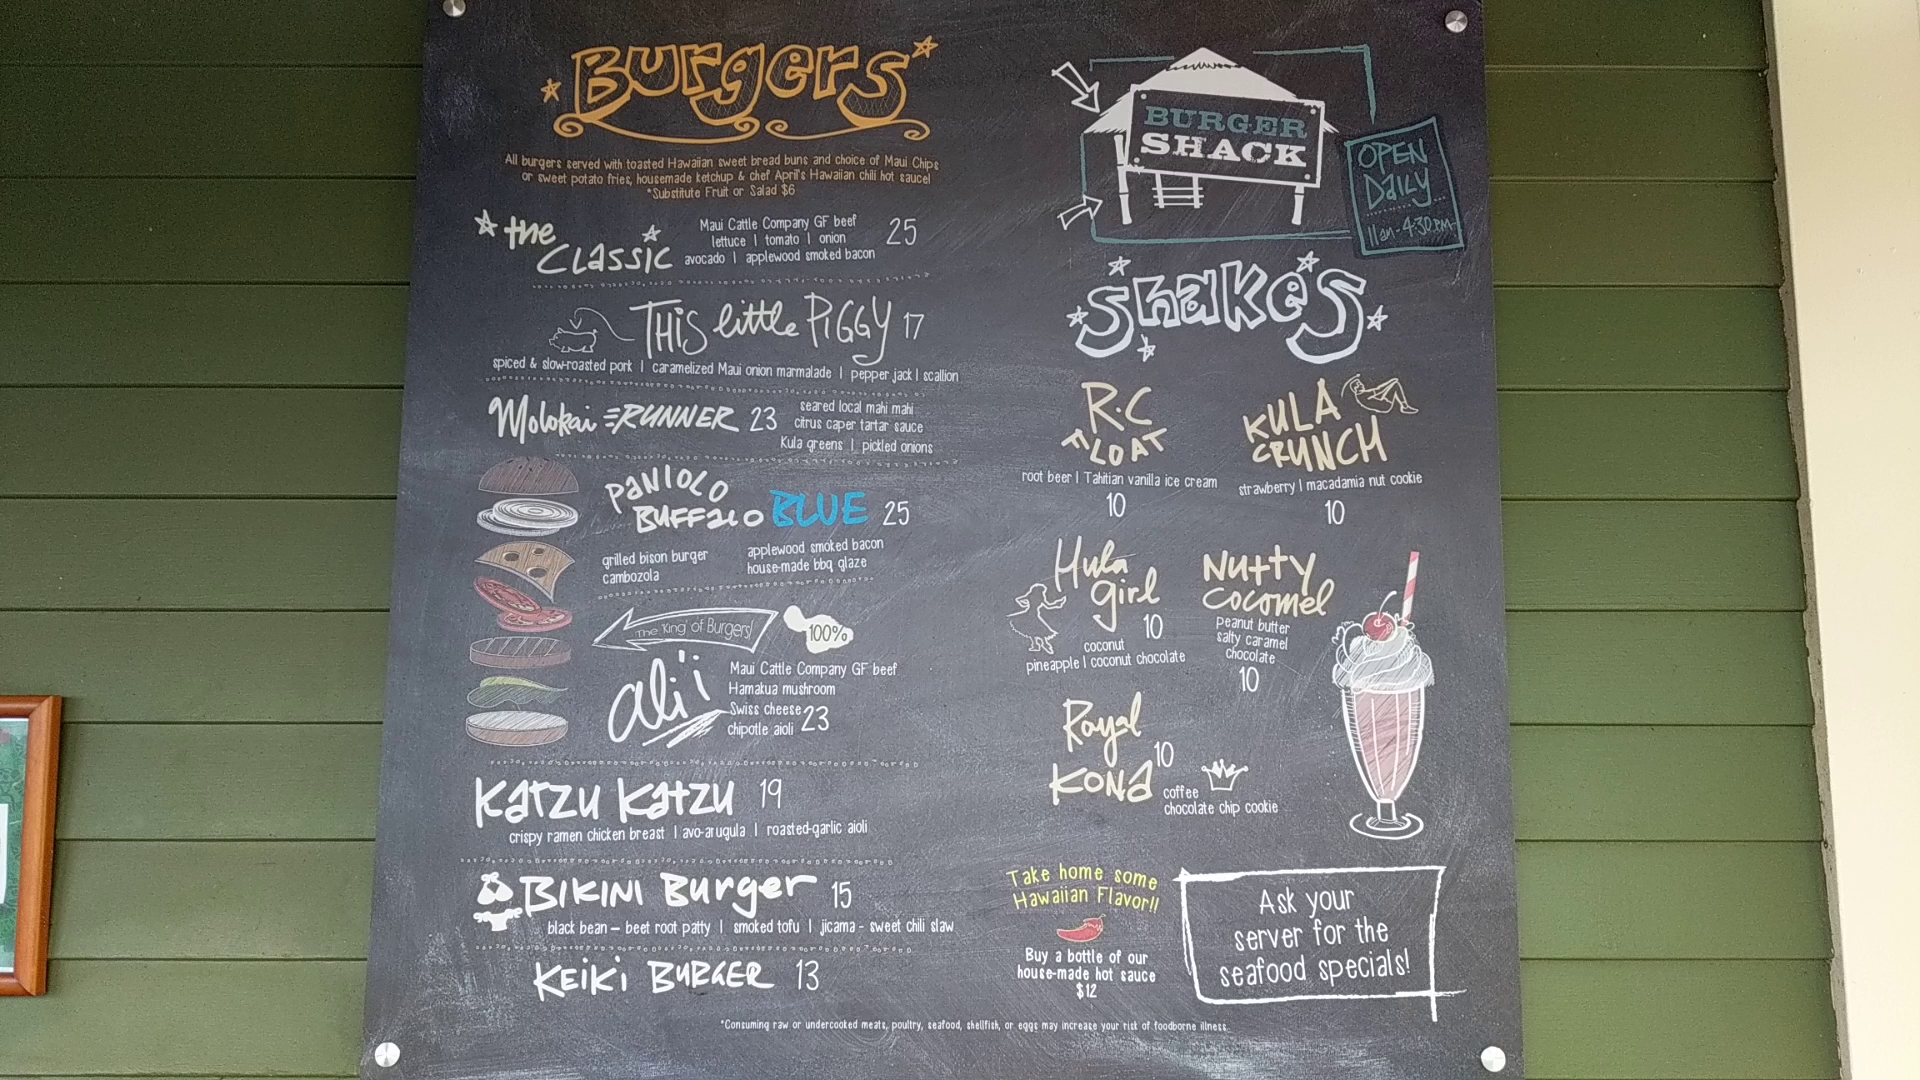 Burgers
All burgers served with toasted Hawaiian sweet bread buns and choice of Maui Chips
or sweet potato fries, housemade ketchup & chef April's Hawaiian chili hot sauce!
*Substitute Fruit or Salad $6
the
Classic
Maui Cattle Company GF beef
lettuce | tomato | onion
avocado | applewood smoked bacon
25
THiS little PiGGY 17
spiced & slow-roasted pork | caramelized Maui onion marmalade | pepper jack | scallion
Molokai RUNNER 23
seared local mahi mahi
citrus caper tartar sauce
Kula greens | pickled onions
Paniolo
Buffalo BLUE 25
grilled bison burger
cambozola
applewood smoked bacon
house-made bbq glaze
The 'King' of Burgers!
100%
ali'i
Maui Cattle Company GF beef
Hamakua mushroom
Swiss cheese
chipotle aioli 23
Katzu Katzu 19
crispy ramen chicken breast | avo-arugula | roasted-garlic aioli
BIKINI Burger 15
black bean – beet root patty | smoked tofu | jicama - sweet chili slaw
KEiKi BURGER 13
BURGER
SHACK
OPEN
DaiLY
11am-4:30PM
Shakes
R.C
FLOAT
root beer | Tahitian vanilla ice cream
10
KULA
CRUNCH
strawberry | macadamia nut cookie
10
Hula
girl
10
coconut
pineapple | coconut chocolate
Nutty
cocomel
peanut butter
salty caramel
chocolate
10
Royal
Kona
10
coffee
chocolate chip cookie
Take home some
Hawaiian Flavor!!
Buy a bottle of our
house-made hot sauce
$12
Ask your
server for the
seafood specials!
*Consuming raw or undercooked meats, poultry, seafood, shellfish, or eggs may increase your risk of foodborne illness.